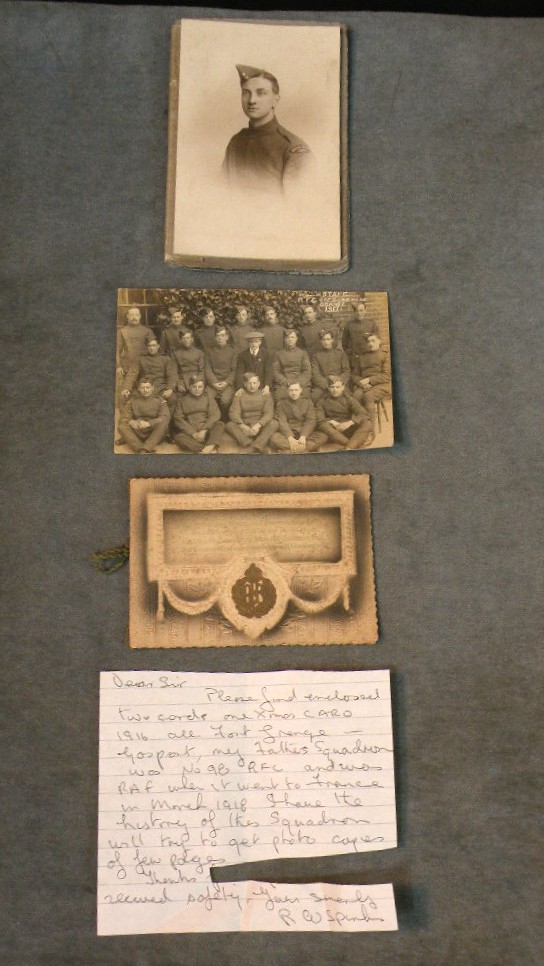 STAFF
R.F.C.
1917
Dear Sir
Please find enclosed
two cards one Xmas CARD
1916 all Fort Grange —
Gosport, my Father Squadron
was No 98 RFC and was
RAF when it went to France
in March 1918 I have the
history of this Squadron
will try to get photo copies
of few pages
Thanks
received safety, Yours Sincerely
R W